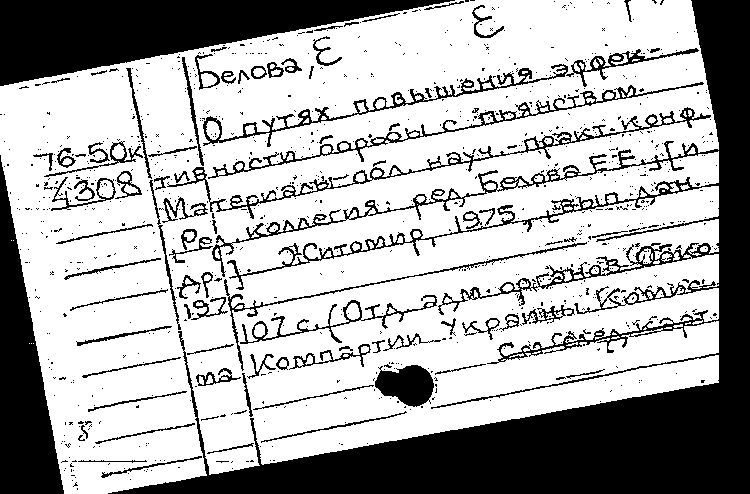 Белова, Е Е
О путях повышения эффек-
76-50к
тивности борьбы с пьянством.
4308
Материалы обл. науч.-практ. конф.
[Ред. коллегия: ред. Белова Е.Е., [и
др.]. Житомир, 1975, [вып. дан.
1976].
107 с. (Отд. адм. органов Обко
ма Компартии Украины. Комис.
см след. карт.
8